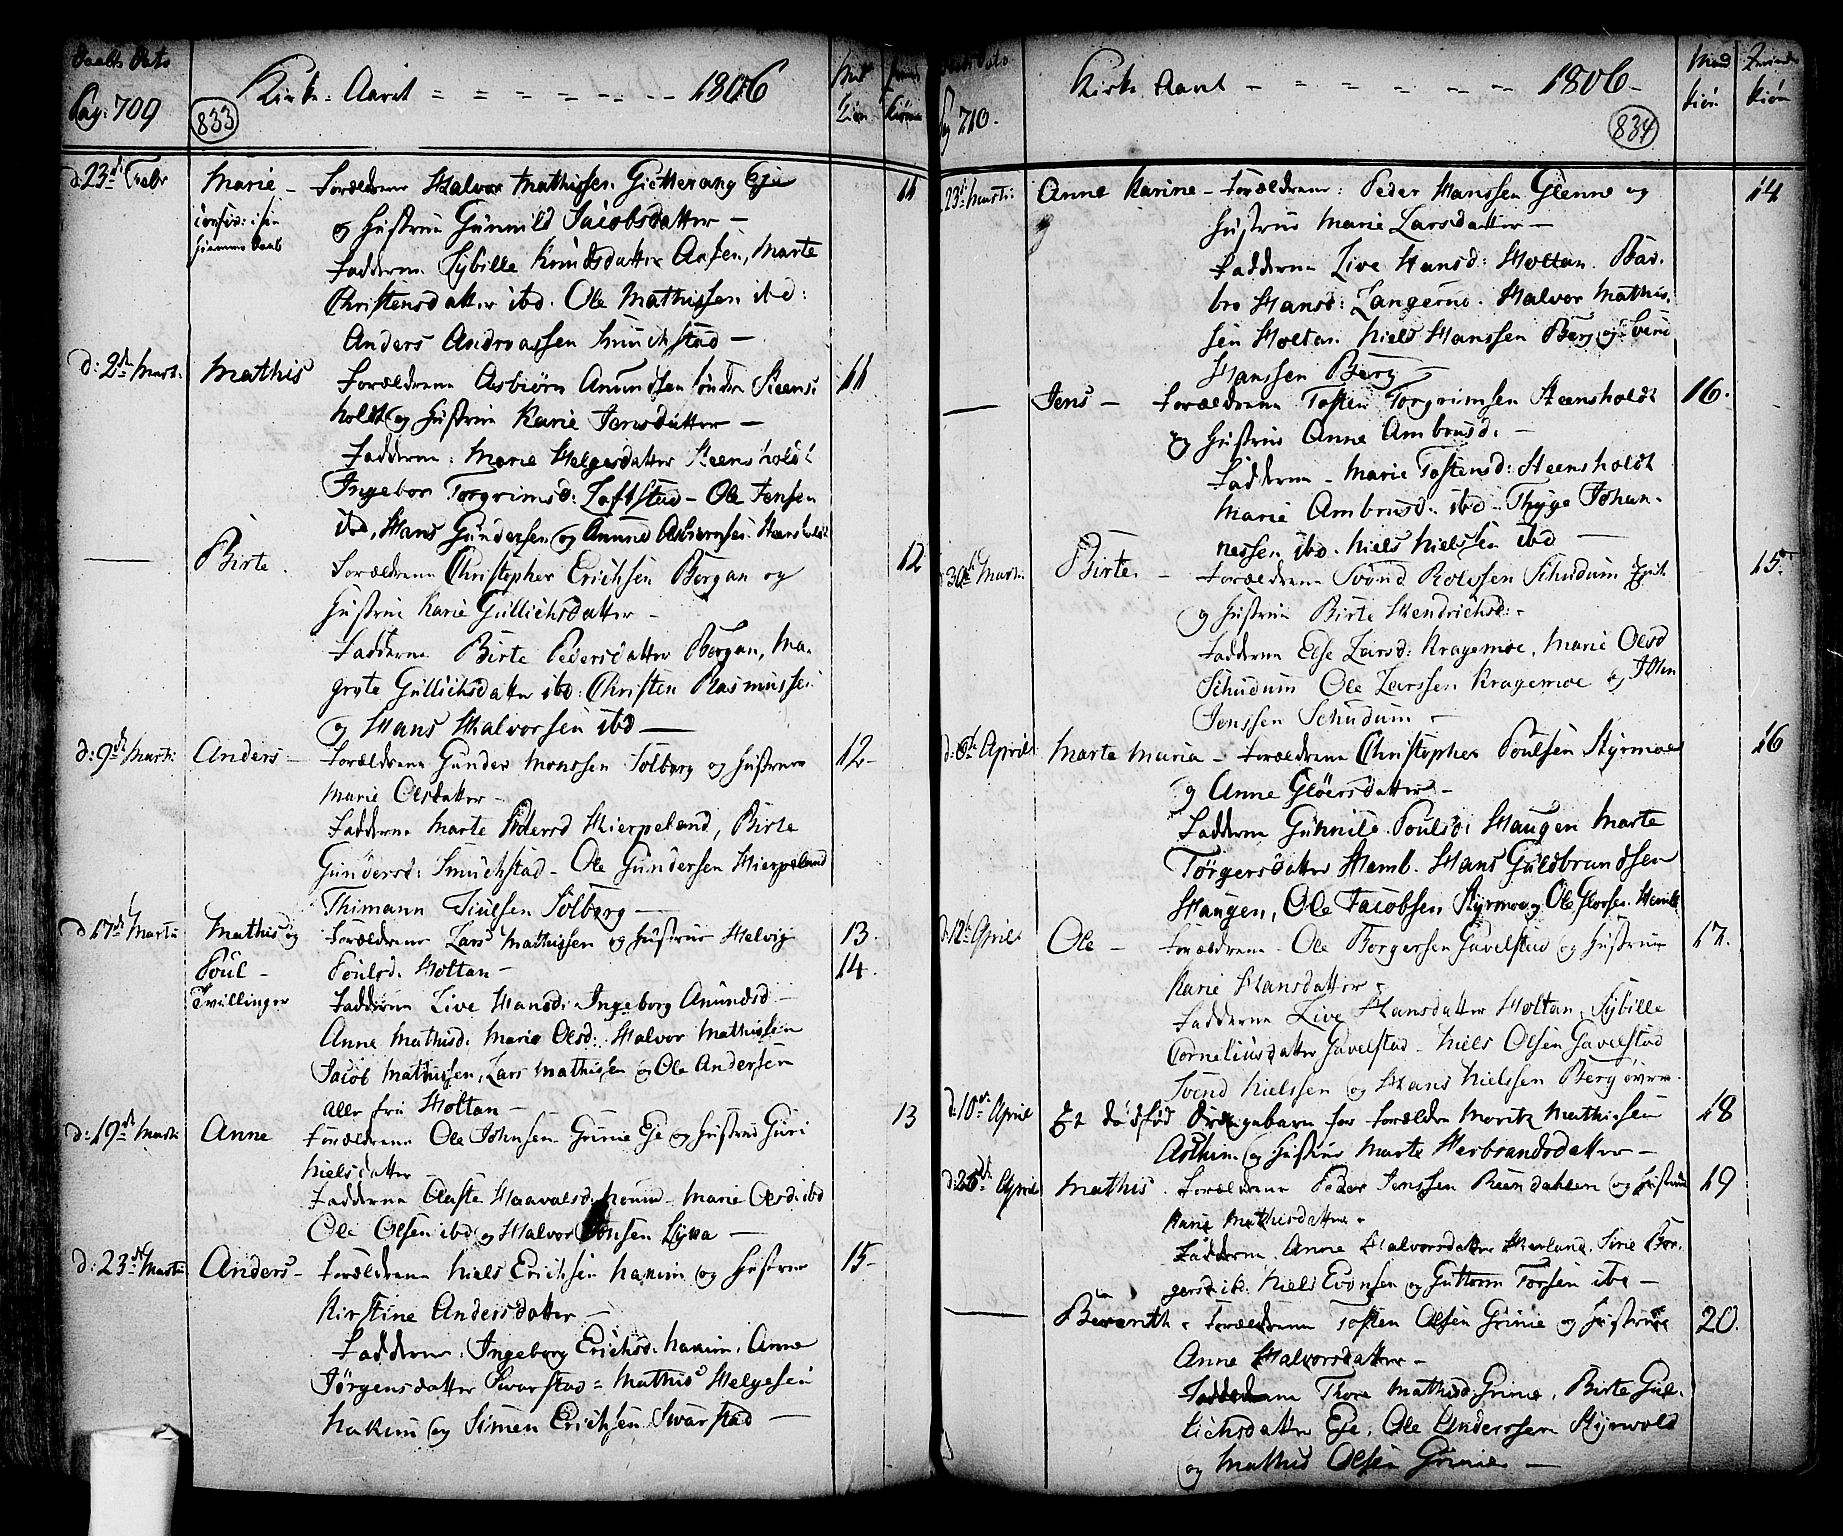 Daabs Dato
Pag: 709
833
Kirke-Aaret = = = = = - -- 1806
Mk Kiøn
Kiønn
d: 23de Febr Marie - Forældrene Halvor Mathissen Gietterang Eje 11
confir: i sin hiemme daab
og Hustrue Gunnild Jacobsdatter -
Fadderne Sybille Knudsdatter Aasen, Marte
Christensdatter ibd. Ole Mathissen ibd:
Anders Andreassen Smuchstad -
d: 2de Marti. Mathis Forældrene Asbiørn Amundsen søndre Steens- 11
holdt og Hustrue Karie Jensdatter -
Fadderne: Marie Helgesdatter Steensholdt
Ingebor Torgrimsd: Loftstad - Ole Jensen
ibd, Hans Gundersen og Amund Asbiørnsen Steensholdt
— Birte. Forældrene Christopher Erichsen Borgan og 12
Hustrue Karie Gullichsdatter -
Fadderne Birte Pedersdatter Borgan, Ma-
grete Gullichsdatter ibd: Christen Rasmussen
og Hans Halvorsen ibd —
d: 9de Marti: Anders - Forældrene Gunder Monssen Solberg og Hustrue 12-
Marie Olsdatter -
Fadderne Marte Pedersd Hierpeland, Birte
Gundersd: Smuchstad - Ole Gundersen Hierpeland
Thimann Juulsen Solberg —
d: 17de Martii Mathis og Forældrene Lars Mathissen og Hustrue Helvig 13.
Poul - Poulsd. Holtan - 14.
Tvillinger Fadderne Live Hansd: Ingeborg Amundsd -
Anne Mathisd: Marie Olsd: Halvor Mathissen
Jacob Mathissen, Lars Mathissen og Ole Andersen
alle fra Holtan -
d: 19de Marti: Anne Forældrene Ole Johnsen Grinie Eje og Hustrue Guri 13
Nielsdatter -
Fadderne Aaste Haavalsd: Marie Olsd: ibd
Ole Olsen ibd og Halvor Lyna —
d: 23de Martii Anders - Forældrene Niels Erichsen Hakum og Hustrue 15-
Kirstine Andersdatter -
Fadderne: Ingeborg Erichsd: Hakum. Anne
Jørgensdatter Svarstad = Mathis Helgesen
Hakum og Simen Erichsen Svarstad —
Dato
Pag 710.
Kirke Aaret - - - - - -- 1806-
834
Mand Kiøn
Quinde Kiøn
23de Marti: Anne Karine - Forældrene: Peder Hanssen Glenne og 14
Hustrue Marie Larsdatter -
Fadderne Live Hansd: Holtan. Bar-
bro Hansd: Langerud. Halvor Mathis-
sen Holtan. Niels Hanssen Berg og Svend
Hanssen Berg -
— Jens - Forældrene Tosten Torgrimsen Steensholdt 16.
og Hustrue Anne Ambrusd. -
Fadderne - Marie Tostensd: Steensholdt
Marie Ambrusd. ibd - Thyge Johan-
nessen ibd. Niels Nielssen ibd —
d: 30de Marti: Birte. - Forældrene Svend Rolssen Schudum 15-
og Hustrue Birte Hendrichsd: -
Fadderne Else Larsd: Kragemoe, Marie Olsd
Schudum Ole Larssen Kragemoe og John
Jenssen Schudum -
d: 6te April Marte Maria - Forældrene Christopher Poulsen Styrmoe 16
og Anne Gløersdatter -
Fadderne Gunnild Poulsd: Haugen Marte
Torgersdatter Hemb. Hans Guldbrandsen
Haugen, Ole Jacobsen Styrmoe og Ole Gloersen
d: 12te April Ole - Forældrene - Ole Borgersen Gavelstad og Hustrue 17.
Karie Hansdatter -
Fadderne Live Hansdatter Holtan, Sybille
Corneliusdatter Gavelstad - Niels Olsen Gavelstad
Svend Nielssen og Hans Nielssen Berg øvre.
d: 10de April Et dødfød Drengebarn for Forældre Moritz Mathissen 18
og Hustrue Marte Herbrandsdatter -
April Mathis. Forældrene Peder Jenssen Reendahlen og Hustrue 19
Karie Mathisdatter.
Fadderne. Anne Halvorsdatter Hierland. Sirie Bor-
gersd ibd. Niels Evensen og Guttorm Torsen ibd -
— Berenth - Forældrene Tosten Olsen Grinie og Hustrue 20.
Anne Halvorsdatter -
Fadderne Thore Mathisd: Grinie, Birte Gul-
lichsdatter Eje, Ole Anderssen Styrvold
og Mathis Olsen Grinie —